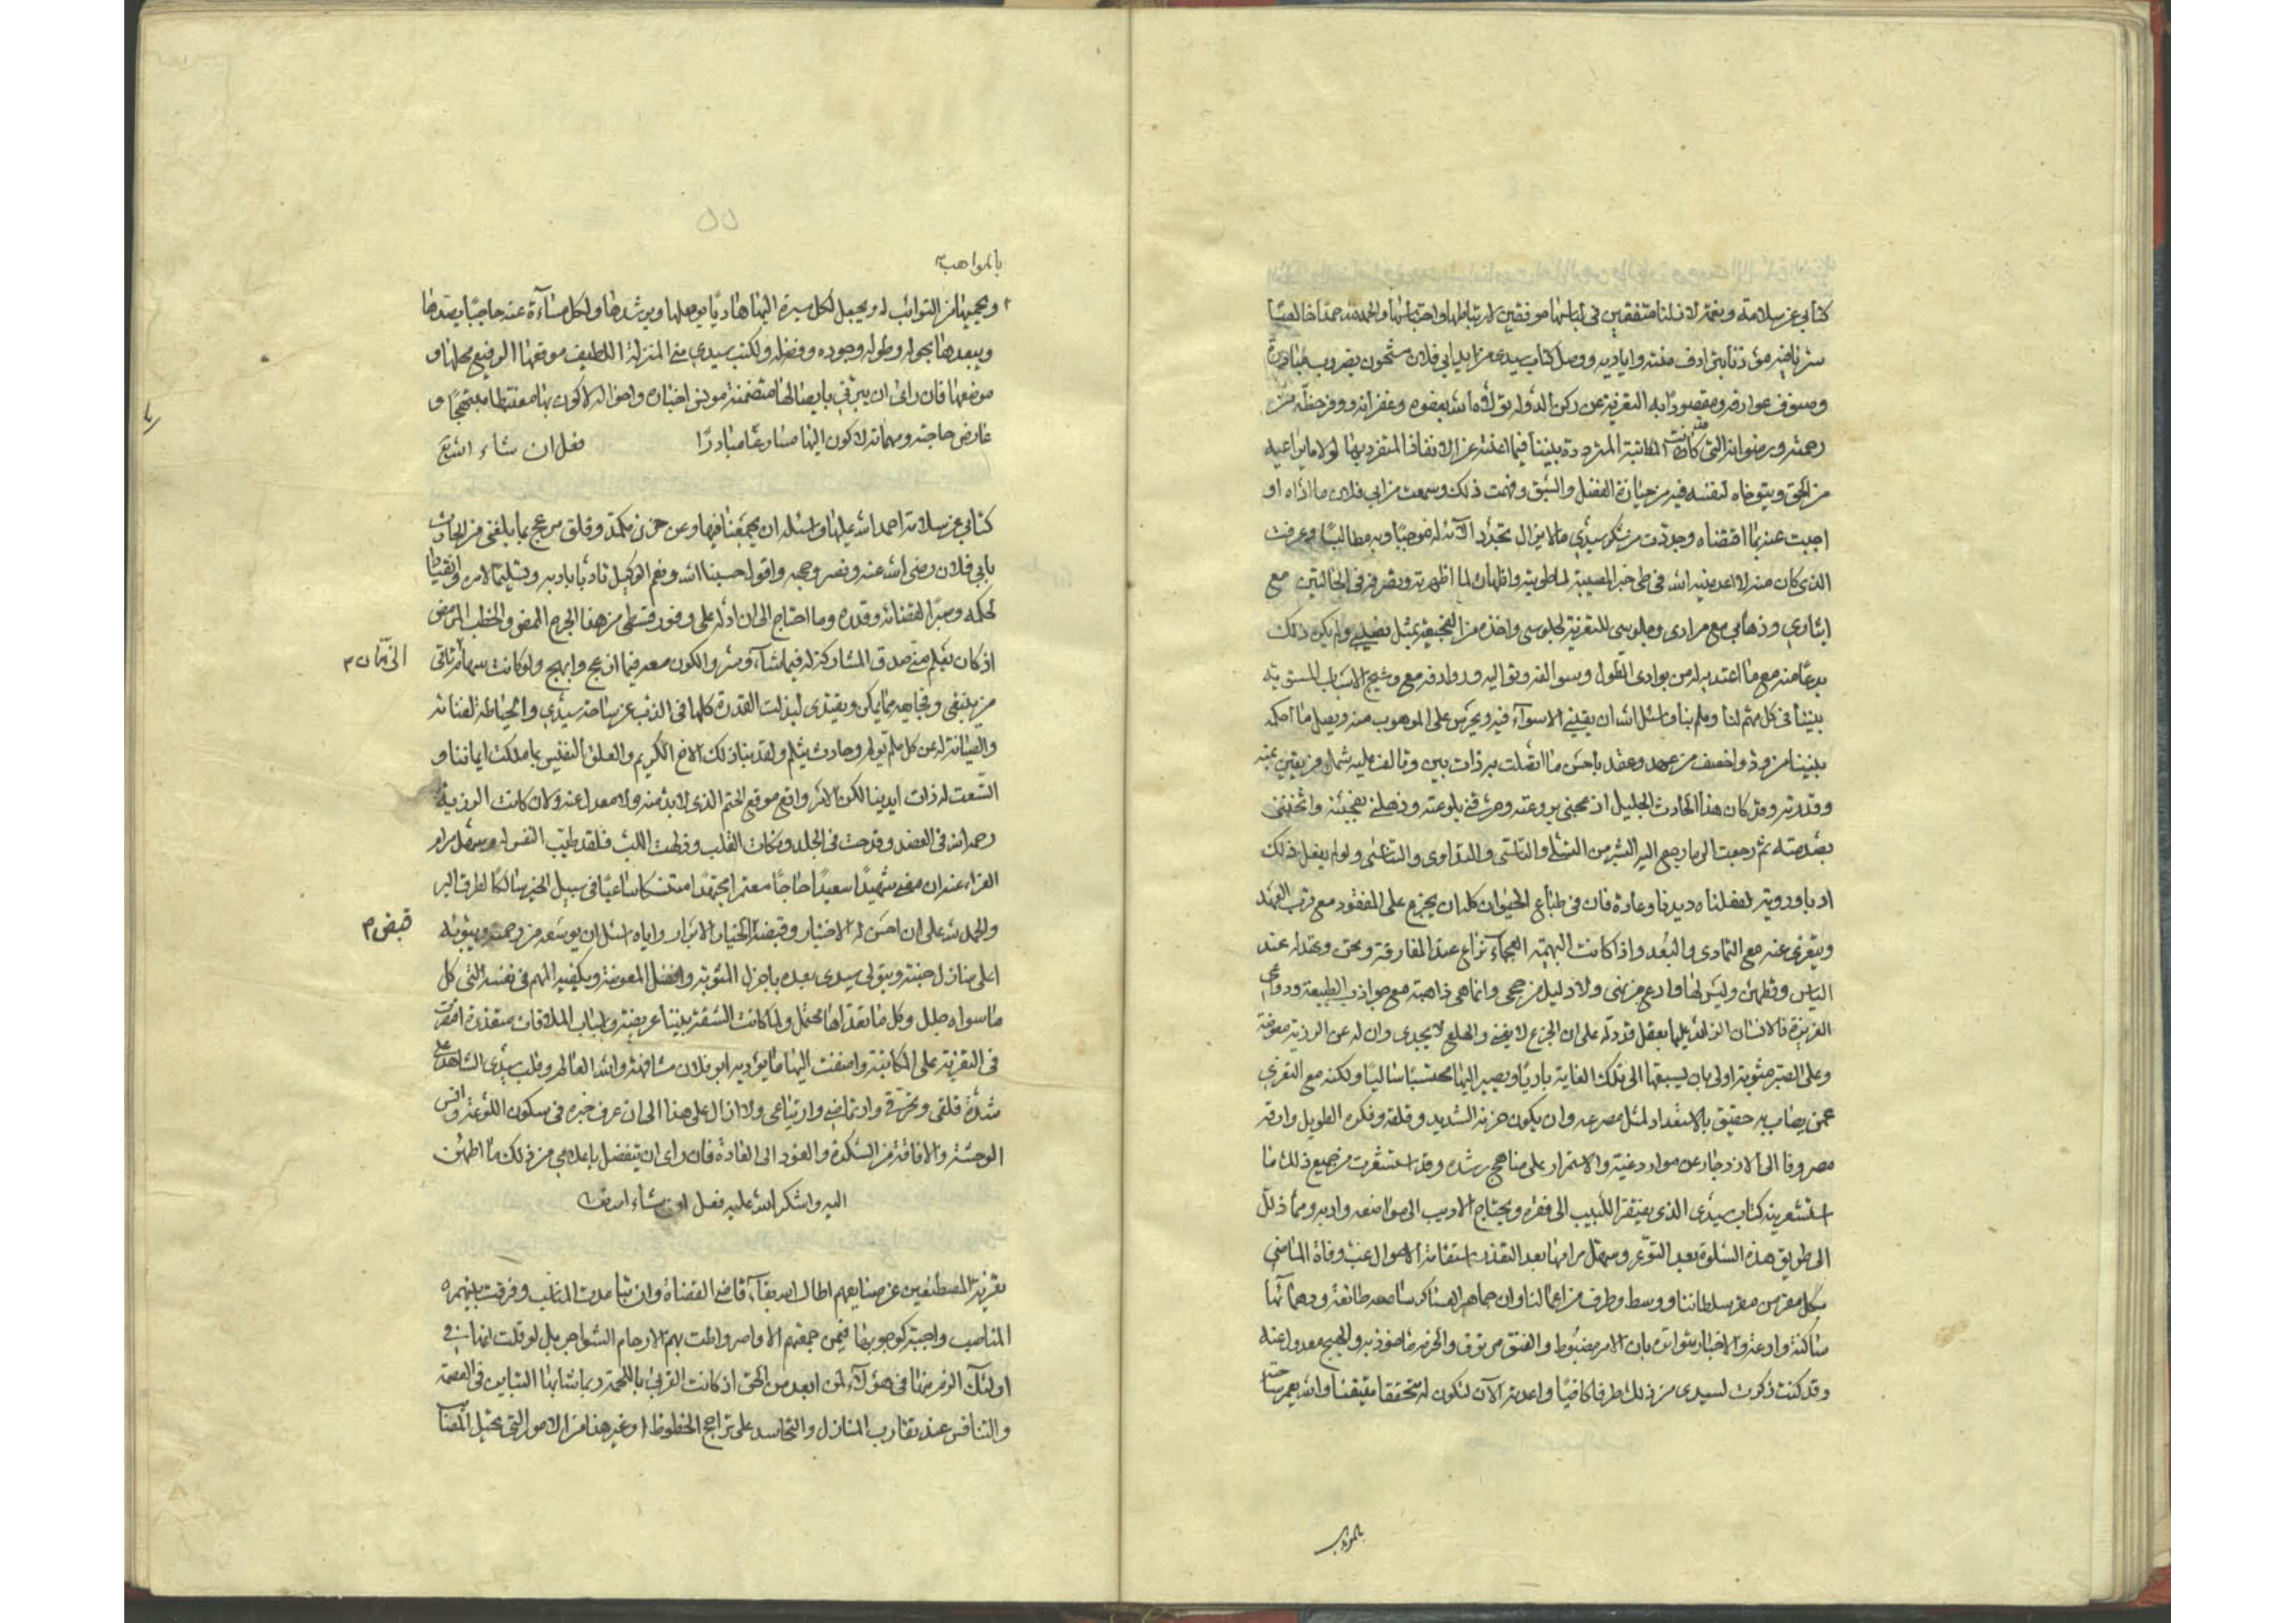 كتابي عن سلامة ونعمة لا زلنا متفقين في لباسها موفقين لارتباطها واحتباسها والحمد لله حمدا خالصا
وصنوف عوارفه ومقصورا به التعزية عن ركن الدولة تولاه الله بعفوه وغفرانه ووفر حظه من
رحمته ورضوانه التي كانت المكاتبة المترددة بيننا فيما اغنته عن الانفاذ المتفرد بها لولا ما يراعيه
من الحق ويتوخاه لنفسه فيه من حيازة الفضل والسبق وفهمت ذلك وسمعت من ابي فلان ما اداه او
اجبت عنه بما اقتضاه وجددت من شكر سيدي ما لا يزال تجدد الآنه له موجبا وبه مطالبا وعرفت
الذي كان منه لا اعدمنيه الله في طي خبر المصيبة لما طويته واظهاره لما اظهرته وتصرفه في الحالتين مع
ايثاري وذهابي مع مرادي وجلوسي للتعزية لجلوسي واخذه من الفجيعة بمثل نصيبي ولم يكن ذلك
بدعا منه مع ما اعتد به له من بوادي الطول وسوالفه وتواليه وروادفه مع وشيج الاسباب المستوية
بيننا في كل مهم لنا وملم بنا واسئل الله ان يقيني الاسوآء فيه ويحرس على الموهوب منه ويصل ما احكمه
بيننا من ود واحصف من عهد وعقد باحسن ما اتصلت به ذات بين وتالف عليه شمل فريقين بمنه
وقدرته وقد كان هذا الحادث الجليل ازعجني بروعته وحرقني بلوعته وذهلني بفجيئته واثخنني
بصدمته ثم رجعت الى ما يرجع اليه البشر من التسلي والتاسي والتداوي والتاني ولو لم يفعل ذلك
ادبا وروية لفعلناه ديدنا وعادة فان في طباع الحيوان كله ان يجزع على المفقود مع قرب العهد
ويتعزى عنه مع التمادي والبعد واذا كانت البهيمة العجماء تراع عند المفارقة وتحن وعند له عند
الياس وتطمئن وليس لها وادع من نهى ولا دليل من حجى وانما هي ذاهبة مع جواذب الطبيعة ودواعي
الغريزة فالانسان الزائد عليها بعقل قد دله على ان الجزع لا يغني والهلع لا يجدي وان له عن الرزية معوضة
وعلى الصبر مثوبة اولى بان يسبقها الى تلك الغاية باديا ويصير اليها محتسبا ساليا ولكنه مع التعزي
عمن يصاب به حقيق بالاستعداد لمثل مصرعه وان يكون حزنه الشديد وقلقه وفكره الطويل وارقه
مصروفا الى الازدجار عن موارد غيته والاستمرار على مناهج رشده وقد استشعرت من جميع ذلك ما
استشعرنيه كتاب سيدي الذي يفتقر اللبيب الى فقره ويحتاج الاديب الى مواضعه وادبه ومما ذلل
الى طريق هذه السلوة بعد التوعر وسهل مرامها بعد التعذر استقامة الاحوال غب وفاة الماضي
بكل مقر من مقر سلطاننا ووسط وطرف من اعمالنا وان جماهير العساكر سامعة طائعة ودهمائها
ساكنة وادعة والاخبار متواترة بان الامر مضبوط والفتق مرتوق والحزم ماخوذ به والهيج معدول عنه
وقد كنت ذكرت لسيدي من ذلك طرفا كافيا واعدته الآن لتكون له متحققا متيقنا والله يعمر ساحته
بالمواهب
بالمواهب
ويحميها من النوائب له ويجعل لكل مسرة اليها هاديا يوصلها ويرشدها ولكل مسآءة عنه حاجبا يصدها
ويبعدها بحوله وطوله وجوده وفضله ولكتب سيدي مني المنزلة اللطيف موقعها الرفيع محلها و
موضعها فان راى ان يبرني بايصالها متضمنة مونق اخباره واحواله لاكون بها مغتبطا مبتهجا و
عارض حاجته ومهماته لاكون اليها مسارعا مبادرا فعل ان شاء الله تع
كتابي عن سلامة احمد الله عليها واسئله ان يجمعنا فيها وعن حزن مكمد وقلق مزعج بما بلغني من الحادث
بابي فلان رضي الله عنه ونضر وجهه واقول حسبنا الله ونعم الوكيل تادبا بادبه وتسليما لامره وانقيادا
لحكمه وصبرا لقضائه وقدره وما احتاج الى ان ادله على وفور قسطي من هذا الجرح الممض والخطب المرمض
اذ كان يعلم مني صدق المشاركة له فيما شآء وسر والكون معه فيما ازعج وابهج ولو كانت سهام تتاقى
الزمان
من ينبغي وفجايعه مما يمكن ويفتدى لبذلت القدرة كلها في الذب عن ساحة سيدي والحياطة لفنائه
والصيانة له عن كل ملم يؤلم وحادث يثلم ولفديناه ذلك الاخ الكريم والعلق النفيس بما ملكت ايماننا و
اتسعت له ذات ايدينا لكن الامر واقع موقع الحتم الذي لابد منه ولا معدل عنه ولان كانت الرزية
رحمه الله في العضد وقدحت في الجلد ونكات القلب وفطرت اللب فلقد طيب النفس له وسهل مرام
العزاء عنه ان مضى شهيدا سعيدا حاجا معتمرا مجتهدا متنسكا ساعيا في سبيل الخير سالكا لطرق البر
والحمد لله على ان احسن له الاختيار وقبضه الخيار الابرار واياه اسئل ان يوسعه من رحمته ويبوئه
قبض
اعلى منازل جنته ويتولى سيدي بعده باجزل المثوبة وافضل المعوضة ويكفيه المهم في نفسه التي كل
ما سواه جلل وكل ما تعداها محتمل ولما كانت الشقة بيننا عريضة واسباب الملاقات متعذرة اقتصرت
في التعزية على المكاتبة واضفت اليها ما يؤديه ابو فلان مشافهة والله العالم وقلب سيدي الشاهد على
شدة قلقي وتحرقي وارتماضي وارتياعي ولا ازال على هذا الى ان عرف خبره في سكون اللوعة وانس
الوحشة والافاقة من السكرة والعود الى العادة فان راى ان يتفضل باعلامي من ذلك ما اطمئن
اليه واشكر الله عليه فعل ان شاء الله تع
تعزية المصطفين عن مصايبهم اطال الله بقآء قاضي القضاة وان تباعدت المناسب وفرقت بينهم
المناصب واجبة كوجوبها فيمن جمعتهم الاواصر واطت بهم الارحام الشواجر بل لو قلت انها في
اولئك الزم منها في هؤلآء لمن ابعد من الحق اذ كانت القربى باللحمة ربما شابها التباين في العصمة
والتنافس عند تقارب المنازل والتحاسد على تراجح الحظوظ وغير هذا من الامور التي تحيل المصافاة